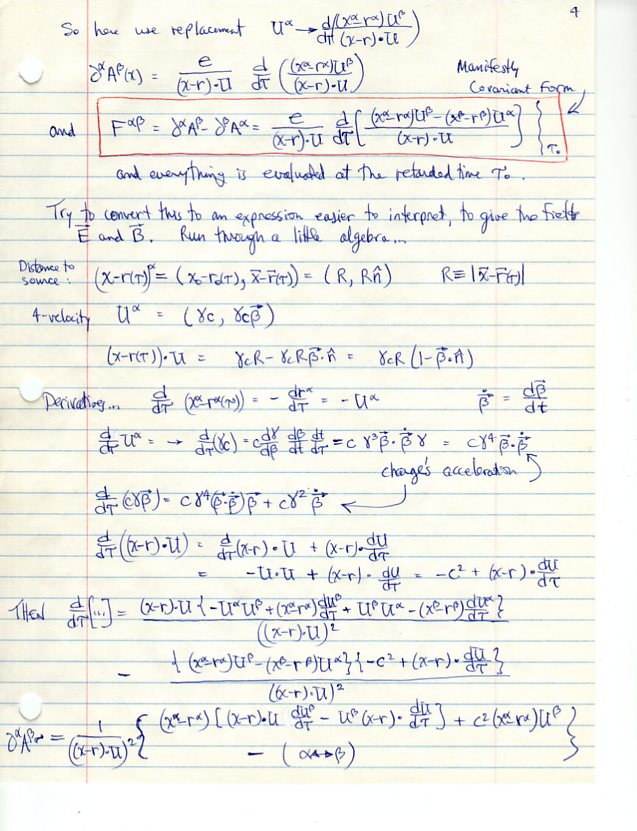 4
So here we replacement U^α → d/dτ ((x^α-r^α)U^β)/((x-r)·U)
∂^αA^β(x) = e/((x-r)·U) d/dτ ((x^α-r^α)U^β / (x-r)·U)
Manifestly
Covariant Form
and F^αβ = ∂^αA^β - ∂^βA^α = e/((x-r)·U) d/dτ [ ((x^α-r^α)U^β - (x^β-r^β)U^α) / ((x-r)·U) ] } τ₀
and everything is evaluated at the retarded time τ₀.
Try to convert this to an expression easier to interpret, to give the fields
E⃗ and B⃗. Run through a little algebra...
Distance to
source: (x-r(τ))^α = (x₀-r₀(τ), x⃗-r⃗(τ)) = (R, Rn̂) R ≡ |x⃗-r⃗(τ)|
4-velocity U^α = (γc, γcβ⃗)
(x-r(τ))·U = γcR - γcRβ⃗·n̂ = γcR(1-β⃗·n̂)
Derivatives... d/dτ (x^α-r^α(τ)) = - dr^α/dτ = -U^α β⃗̇ = dβ⃗/dt
d/dτ U^α = → d/dτ(γc) = c dγ/dβ dβ/dt dt/dτ = c γ³β⃗·β⃗̇ γ = cγ⁴ β⃗·β⃗̇
charge's acceleration
d/dτ(cγβ⃗) = cγ⁴(β⃗·β⃗̇)β⃗ + cγ² β⃗̇
d/dτ((x-r)·U) = d/dτ(x-r)·U + (x-r)·dU/dτ
= -U·U + (x-r)·dU/dτ = -c² + (x-r)·dU/dτ
THEN d/dτ[...] = (x-r)·U {-U^αU^β + (x^α-r^α)dU^β/dτ + U^βU^α - (x^β-r^β)dU^α/dτ} / ((x-r)·U)²
- {(x^α-r^α)U^β - (x^β-r^β)U^α}{-c² + (x-r)·dU/dτ} / ((x-r)·U)²
= 1/((x-r)·U)² { (x^α-r^α)[(x-r)·U dU^β/dτ - U^β(x-r)·dU/dτ] + c²(x^α-r^α)U^β
- (α↔β) }